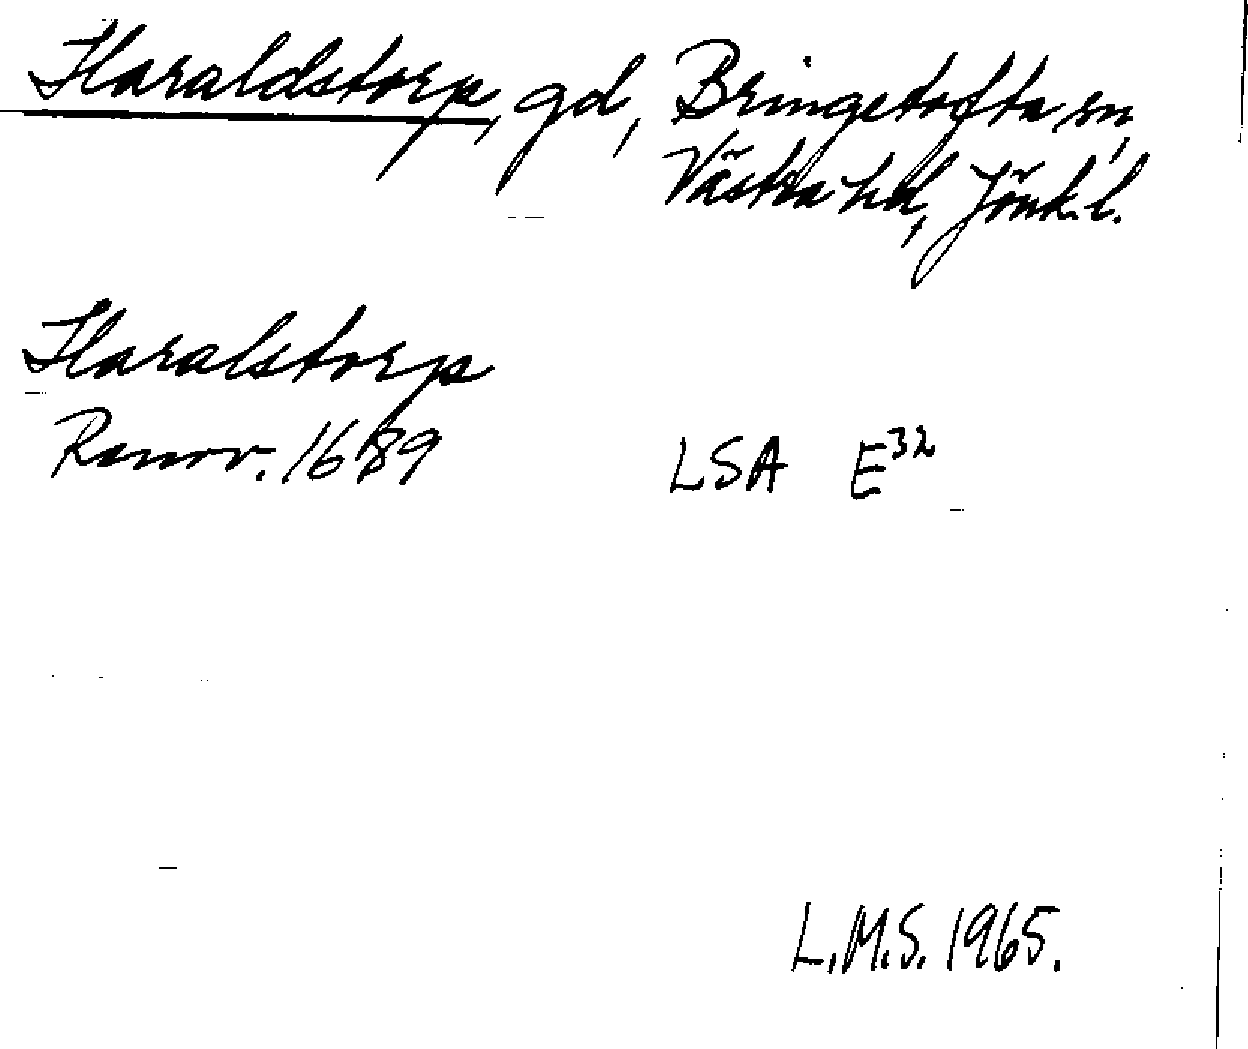 Haraldstorp, gd, Bringetofta sn,
Västra hd, Jönk.l.
Haralstorp
Renov. 1689 LSA E32
L.M.S. 1965.